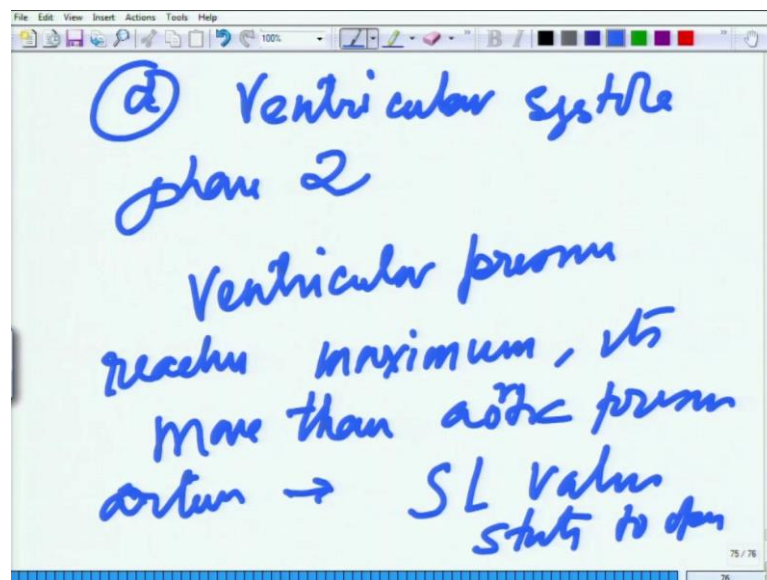 File Edit View Insert Actions Tools Help
100%
B I
d Ventricular systole
phase 2
Ventricular pressure
reaches maximum, its
more than aortic pressure
→ SL valves
starts to open
75 / 76
76